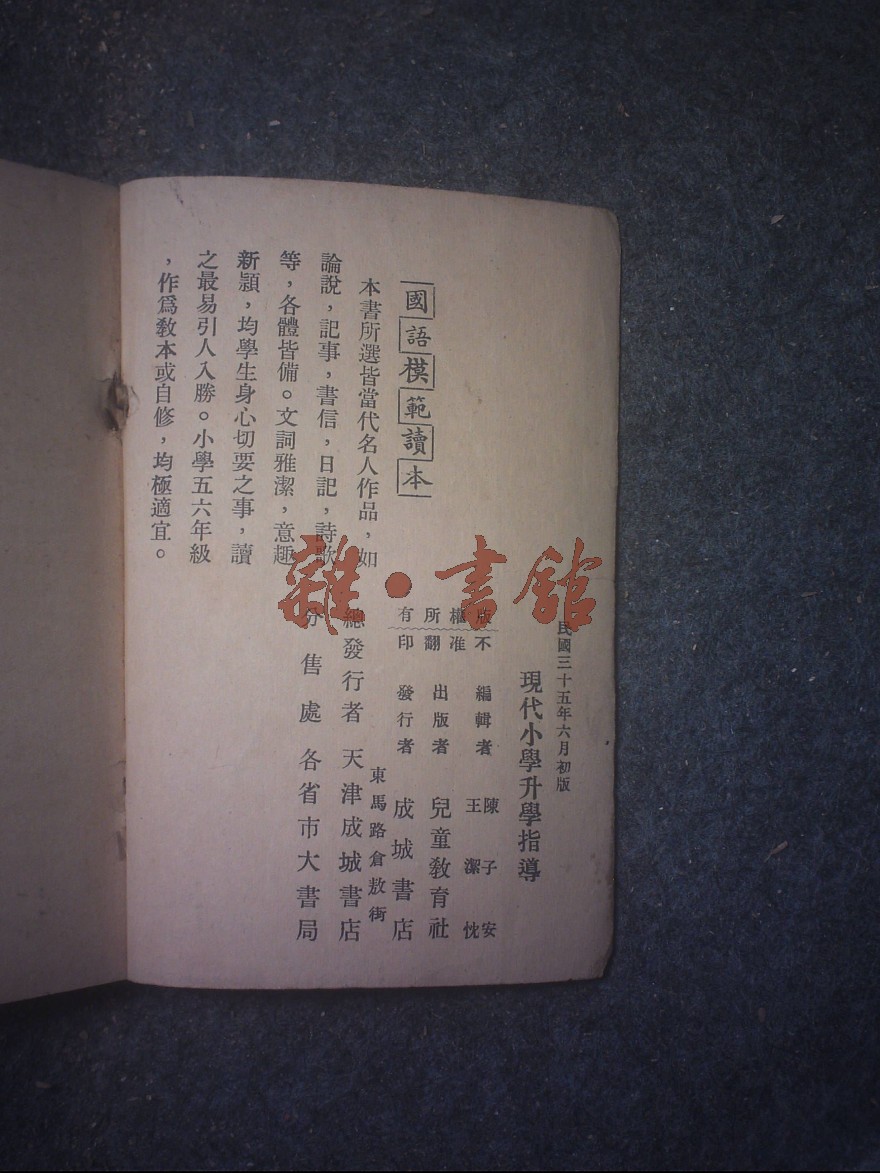 國語模範讀本
本書所選皆當代名人作品，如
論說，記事，書信，日記，詩歌
等，各體皆備。文詞雅潔，意趣
新穎，均學生身心切要之事，讀
之最易引人入勝。小學五六年級
，作爲教本或自修，均極適宜。
民國三十五年六月初版
現代小學升學指導
版權所有
不准翻印
編輯者 陳子安
王潔忱
出版者 兒童教育社
發行者 成城書店
東馬路倉敖街
總發行者 天津成城書店
分售處 各省市大書局
雜·書館